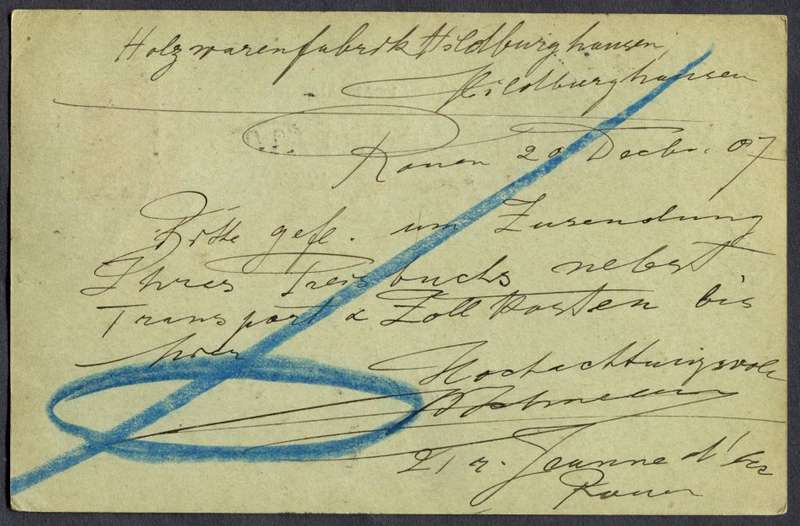 Holzwarenfabrik Hildburghausen,
Hildburghausen
Rouen 20 Decbr. 07
Bitte gefl. um Zusendung
Ihres Preisbuchs nebst
Transport & Zoll Kosten bis
hier
Hochachtungsvoll
21 r. Jeanne d'Arc
Rouen